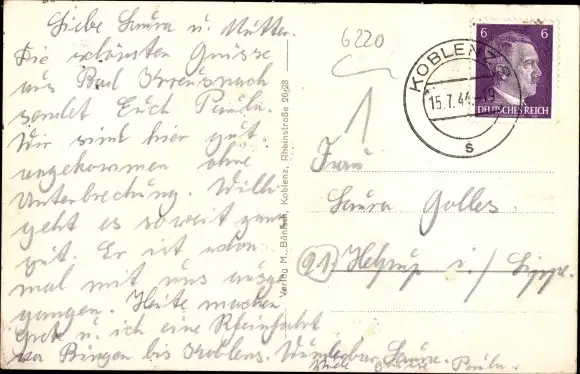 Liebe Laura u. Mutter.
Die schönsten Grüsse
aus Bad Kreuznach
sendet Euch Paula.
Wir sind hier gut
angekommen ohne
Unterbrechung. Willi
geht es soweit ganz
gut. Er ist schon
mal mit uns ausge
gangen. Heute machen
u. ich eine Rheinfahrt
von Bingen bis Koblenz. Wunderbar Laura.
Viele Grüsse Paula.
Verlag M. Bönisch, Koblenz, Rheinstraße 26/28
6220
KOBLENZ
15.7.44
s
6 6
DEUTSCHES REICH
Frau
Laura Golles
(21) i./Lippe.